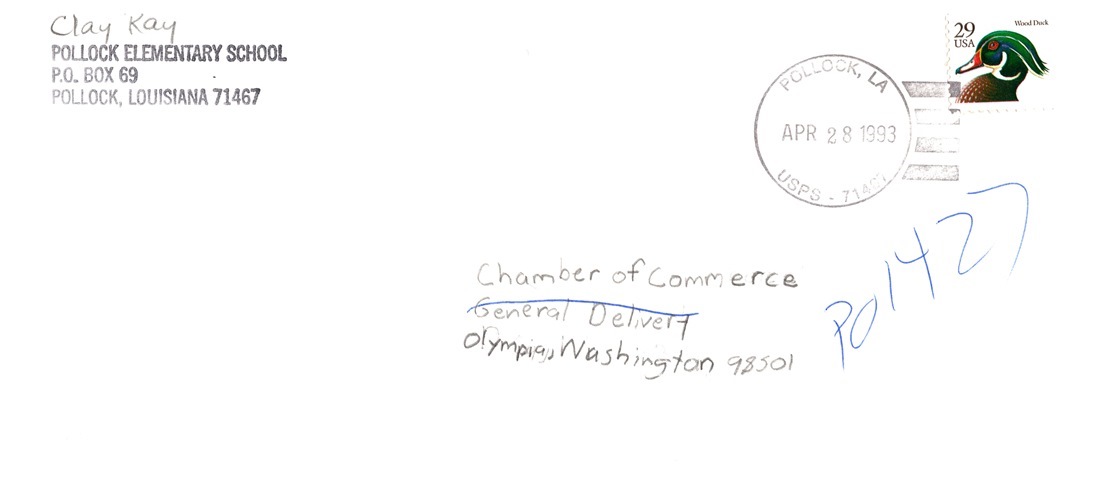 Clay Kay
POLLOCK ELEMENTARY SCHOOL
P.O. BOX 69
POLLOCK, LOUISIANA 71467
29
USA
Wood Duck
POLLOCK, LA
APR 28 1993
USPS - 71467
Chamber of Commerce
General Delivery
Olympia, Washington 98501
PO 1427